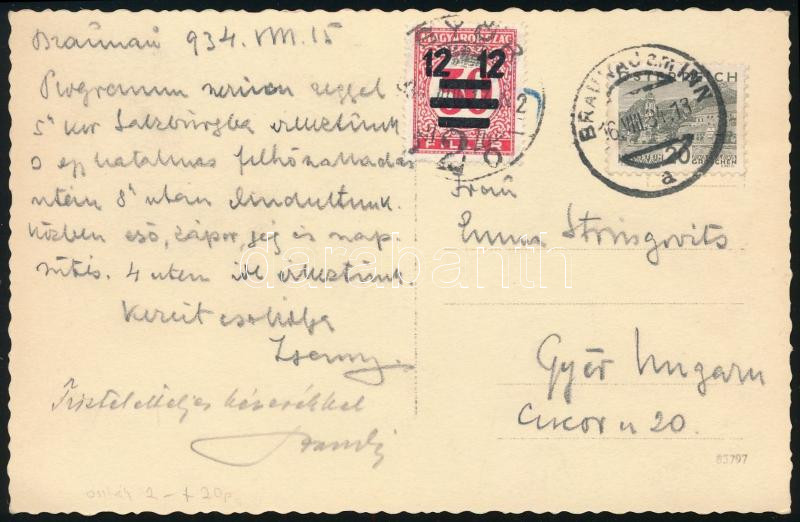 Braunau 934. VIII. 15
Programm szerint reggel
5h kor Salzburgba érkeztünk
egy hatalmas felhőszakadás
után 8h után elindultunk.
Közben eső, zápor, jég és nap-
sütés. 4 után ide érkeztünk.
Kezeit csókolja
Tiszteletteljes kézcsókkal
MAGYARORSZÁG
12 12
FILLÉR
BRAUNAU am INN
16.VIII.34.13
a
ÖSTERREICH
20
GROSCHEN
Frau
Emma
Győr Ungarn
Cukor u 20.
83797
darabanth
2 - + 20p